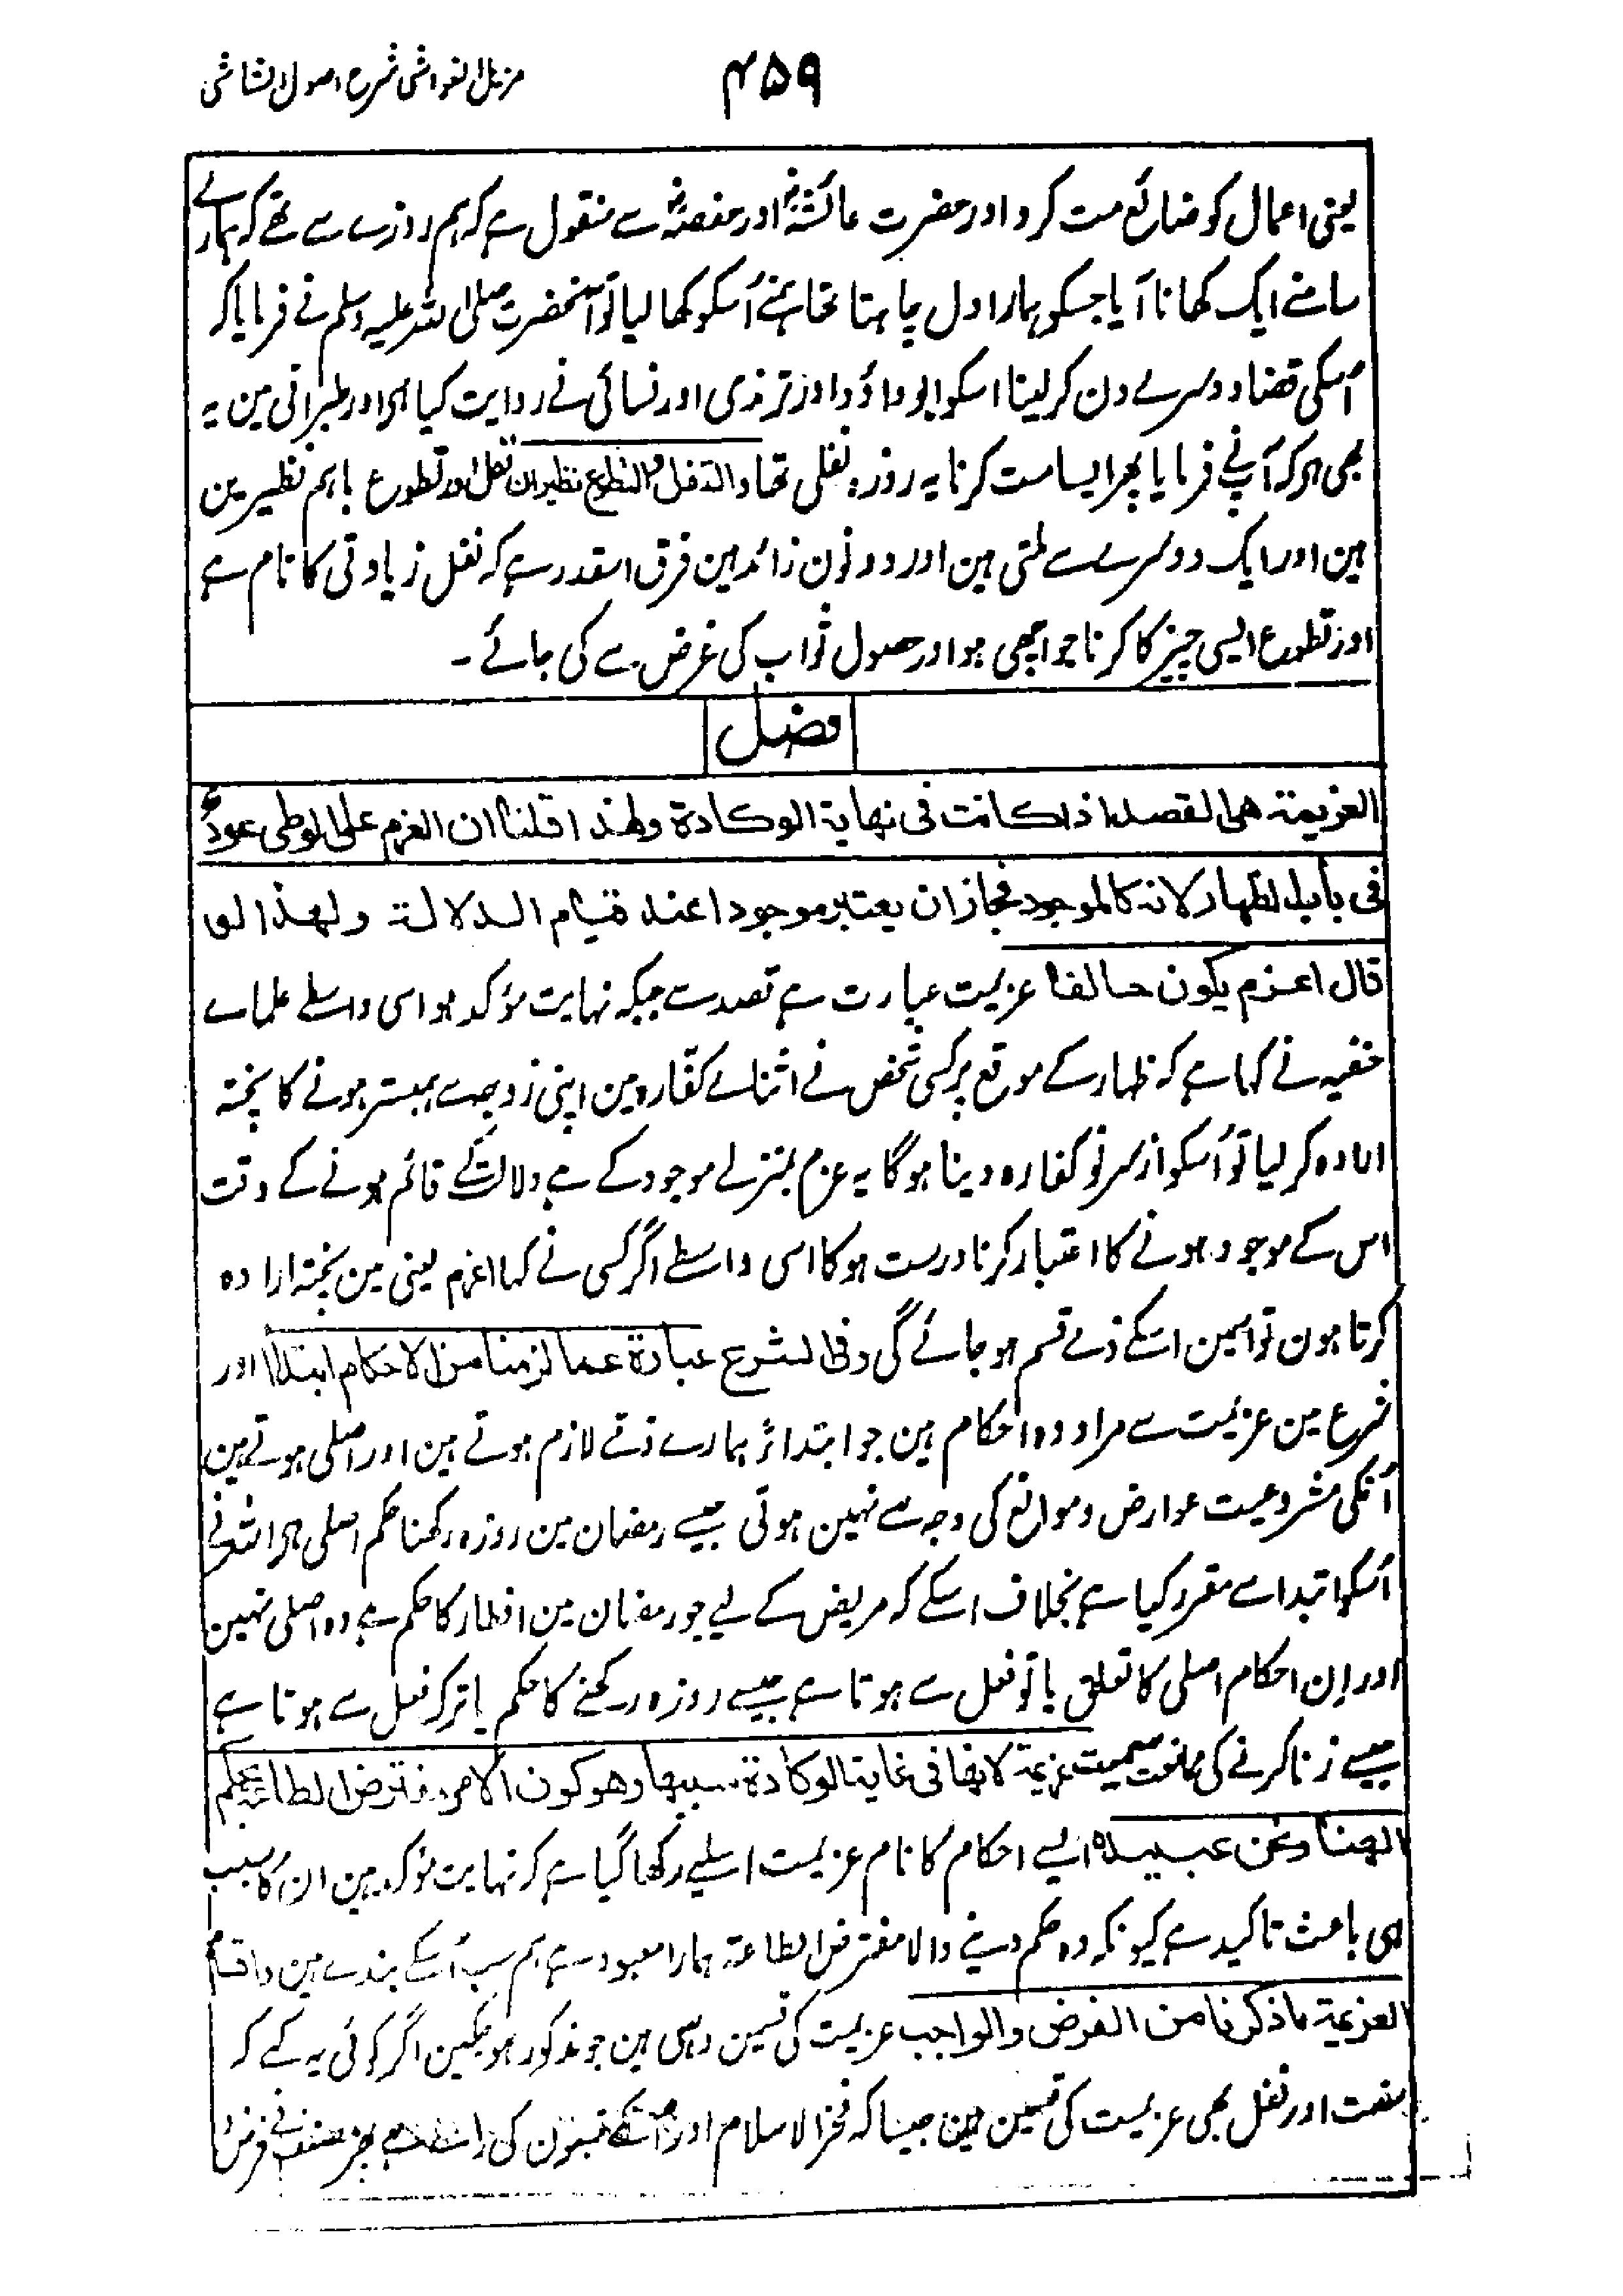 ۴۵۹
مزیل الغواشی شرح اصول الشاشی
یعنی اعمال کو ضائع مت کرو اور حضرت عائشہؓ اور حفصہؓ سے منقول ہے کہ ہم روزے سے تھے کہ ہمارے
سامنے ایک کھانا آیا جسکو ہمارا دل چاہتا تھا ہمنے اُسکو کھا لیا تو آنحضرت صلی اللہ علیہ وسلم نے فرمایا کہ
اُسکی قضا دوسرے دن کر لینا اسکو ابو داؤد اور ترمذی اور نسائی نے روایت کیا ہی اور طبرانی مین یہ
بھی ہی کہ آپنے فرمایا پھر ایسا مت کرنا یہ روزہ نفلی تھا والنفل والتطوع نظیران نفل اور تطوع باہم نظیرین
ہین اور ایک دوسرے سے ملتی ہین اور دونون زائد ہین فرق اسقدر ہے کہ نفل زیادتی کا نام ہے
اور تطوع ایسی چیز کا کرنا جو اچھی ہو اور حصول ثواب کی غرض سے کی جائے ۔
فصل
العزیمۃ ھی القصد اذا کانت فی نھایۃ الوکادۃ ولھذا قلنا ان العزم علی الوطی عود
فی باب الظھار لانہ کالموجود فجاز ان یعتبر موجودا عند قیام الدلالۃ ولھذا لو
قال اعزم یکون حالفا عزیمت عبارت ہے قصد سے جبکہ نہایت مؤکد ہو اسی واسطے علماے
حنفیہ نے کہا ہے کہ ظہار کے موقع پر کسی شخص نے اثنائے کفّارہ مین اپنی زوجہ سے ہمبستر ہونے کا پختہ
ارادہ کر لیا تو اُسکو از سر نو کفارہ دینا ہوگا یہ عزم بمنزلے موجود کے ہے دلالت کے قائم ہونے کے وقت
اس کے موجود ہونے کا اعتبار کرنا درست ہوگا اسی واسطے اگر کسی نے کہا اعزم یعنی مین پختہ ارادہ
کرتا ہون تو اسمین اسکے ذمے قسم ہو جائے گی وفی الشرع عبارۃ عما لزمنا من الاحکام ابتداءً اور
شرع مین عزیمت سے مراد وہ احکام ہین جو ابتداءً ہمارے ذمّے لازم ہوتے ہین اور اصلی ہوتے ہین
اُنکی مشروعیت عوارض و موانع کی وجہ سے نہین ہوتی جیسے رمضان مین روزہ رکھنا حکم اصلی ہی اللہ نے
اُسکو ابتدا سے مقرر کیا ہے بخلاف اسکے کہ مریض کے لیے جو رمضان مین افطار کا حکم ہے وہ اصلی نہین
اور اِن احکام اصلی کا تعلق یا تو فعل سے ہوتا ہے جیسے روزہ رکھنے کا حکم یا ترک فعل سے ہوتا ہے
جیسے زنا کرنے کی ممانعت سمیت عزیمۃ لانھا فی غایۃ الوکادۃ سببھا وھو کون الامر مفترض الطاعۃ بحکم
الھنا ونحن عبیدہ ایسے احکام کا نام عزیمت اسلیے رکھا گیا ہے کہ نہایت مؤکد ہین ان کا سبب
ہی باعث تاکید ہے کیونکہ وہ حکم دینے والا مفترض الطاعۃ ہمارا معبود ہے ہم سب اُسکے بندے ہین واقسام
العزیمۃ ما ذکرنا من الفرض والواجب عزیمت کی قسمین وہی ہین جو مذکور ہو چکین اگر کوئی یہ کہے کہ
سنت اور نفل بھی عزیمت کی قسمین ہین جیسا کہ فخر الاسلام اور اُسکے متبعون کی راے ہے پھر مصنف نے فرض و